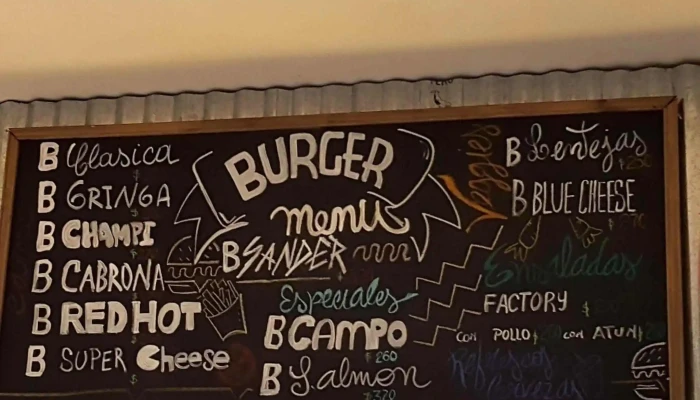 B Clasica
B GRINGA
B CHAMPI
B CABRONA
B RED HOT
B SUPER Cheese
BURGER
menú
B SANDER
Especiales
B CAMPO
$260
B Salmon
$320
Veggies
B Lentejas
B BLUE CHEESE
Ensaladas
FACTORY
con POLLO con ATUN